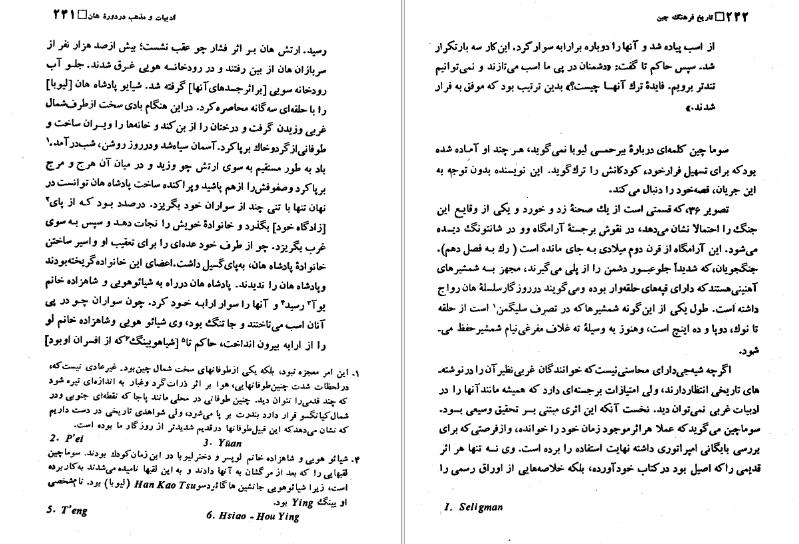 ادبیات و مذهب در دورۀ هان □ ۲۴۱
رسید. ارتش هان بر اثر فشار چو عقب نشست؛ بیش ازصد هزار نفر از
سربازان هان از بین رفتند و در رودخانه هویی غرق شدند. جلو آب
رودخانه سویی [براثرجسدهای‌آنها] گرفته شد. شیایو پادشاه هان [لیوبا]
را با حلقه‌ای سه‌گانه محاصره‌کرد. دراین هنگام بادی سخت ازطرف‌شمال
غربی وزیدن گرفت و درختان را از بن کند و خانه‌ها را ویران ساخت و
طوفانی‌ازگردوخاك برپاکرد. آسمان سیاه‌شد ودرروز روشن، شب‌درآمد.۱
باد به طور مستقیم به سوی ارتش چو وزید و در میان آن هرج و مرج
برپاکرد وصفوفش‌را ازهم پاشید وپراکنده ساخت پادشاه هان توانست در
نهان تنها با تنی چند از سواران خود بگریزد. درصدد بود که از پای۲
[زادگاه خود] بگذرد و خانوادۀ خویش را نجات دهد و سپس به سوی
غرب بگریزد. چو از طرف خود عده‌ای را برای تعقیب او واسیر ساختن
خانوادۀ پادشاه هان، به‌پای‌گسیل داشت.اعضای این خانواده‌گریخته‌بودند
وپادشاه هان را ندیدند. پادشاه هان درراه به شیائوهویی و شاهزاده خانم
یوآ۳ رسید۴ و آنها را سوار ارابه خود کرد. چون سواران چو در پی
آنان اسب می‌تاختند و جا تنگ بود، وی شیائو هویی وشاهزاده خانم لو
را از ارابه بیرون انداخت، حاکم تا۵ [شیاهویینگ۶ که از افسران او بود]
۱. این امر معجزه نبود، بلکه یکی ازطوفانهای سخت شمال چین‌بود. غیرعادی نیست‌که،
درلحظات شدت چنین‌طوفانهایی، هوا بر اثر ذرات‌گرد وغبار به اندازه‌ای تیره شود
که چند قدمی‌را نتوان دید. چنین طوفانی در محلی مانند پاجا که نقطه‌ای جنوبی ودر
شمال‌کیانگسو قرار دارد بندرت بر پا می‌شود، ولی شواهدی تاریخی در دست داریم
که نشان می‌دهدکه این قبیل‌طوفانها درقدیم شدیدتر از روزگار ما بوده است.
2. P'ei 3. Yüan
۴. شیائو هویی و شاهزاده خانم لوپسر و دخترلیوبا در این زمان‌کودك بودند. سوماچین
لقبهایی را که بعد از مرگشان به آنها دادند و به این لقبها نامیده می‌شدند به‌کاربرده
است، زیرا شیائوهویی جانشین هاگائودسو Han Kao Tsu (لیوبا) بود. نام‌شخصی
او یینگ Ying بود.
5. T'eng 6. Hsiao - Hou Ying
۲۴۲ □ تاریخ فرهنگ چین
از اسب پیاده شد و آنها را دوباره برارابه سوارکرد. این‌کار سه بارتکرار
شد. سپس حاکم تا گفت: «دشمنان در پی ما اسب می‌تازند و نمی‌توانیم
تندتر برویم. فایدۀ ترك آنها چیست؟» بدین ترتیب بود که موفق به فرار
شدند.»
سوما چین کلمه‌ای دربارۀ بیرحمی لیوبا نمی‌گوید، هر چند او آماده شده
بودکه برای تسهیل فرارخود، کودکانش را ترك‌گوید. این نویسنده بدون توجه به
این جریان، قصه‌خود را دنبال می‌کند.
تصویر ۳۶، که قسمتی است از یك صحنۀ زد و خورد و یکی از وقایع این
جنگ را احتمالاً نشان می‌دهد، در نقوش برجستۀ آرامگاه وو در شانتونگ دیده
می‌شود. این آرامگاه از قرن دوم میلادی به جای مانده است (رك به فصل دهم).
جنگجویان، که شدیداً جلوعبور دشمن را از پلی می‌گیرند، مجهز به شمشیرهای
آهنینی‌هستندکه دارای قپه‌های حلقه‌وار بوده ومی‌گویند درروزگارسلسلۀ هان رواج
داشته است. طول یکی از این‌گونه شمشیرهاکه در تصرف سلیگمن۱ است از حلقه
تا نوك، دوپا و ده اینچ است، وهنوز به وسیلۀ ته غلاف مفرغی‌نیام شمشیر حفظ می‌-
شود.
اگرچه شیه‌جی‌دارای محاسنی‌نیست‌که خوانندگان غربی‌نظیر آن را درنوشته‌-
های تاریخی انتظاردارند، ولی امتیازات برجسته‌ای دارد که همیشه مانندآنها را در
ادبیات غربی نمی‌توان دید. نخست آنکه این اثری مبتنی بر تحقیق وسیعی بود.
سوماچین می‌گوید که عملا هر اثر موجود زمان خود را خوانده، وازفرصتی‌که برای
بررسی بایگانی امپراتوری داشته نهایت استفاده را برده است. وی نه تنها هر اثر
قدیمی راکه اصیل بود در کتاب خودآورده، بلکه خلاصه‌هایی از اوراق رسمی را
1. Seligman